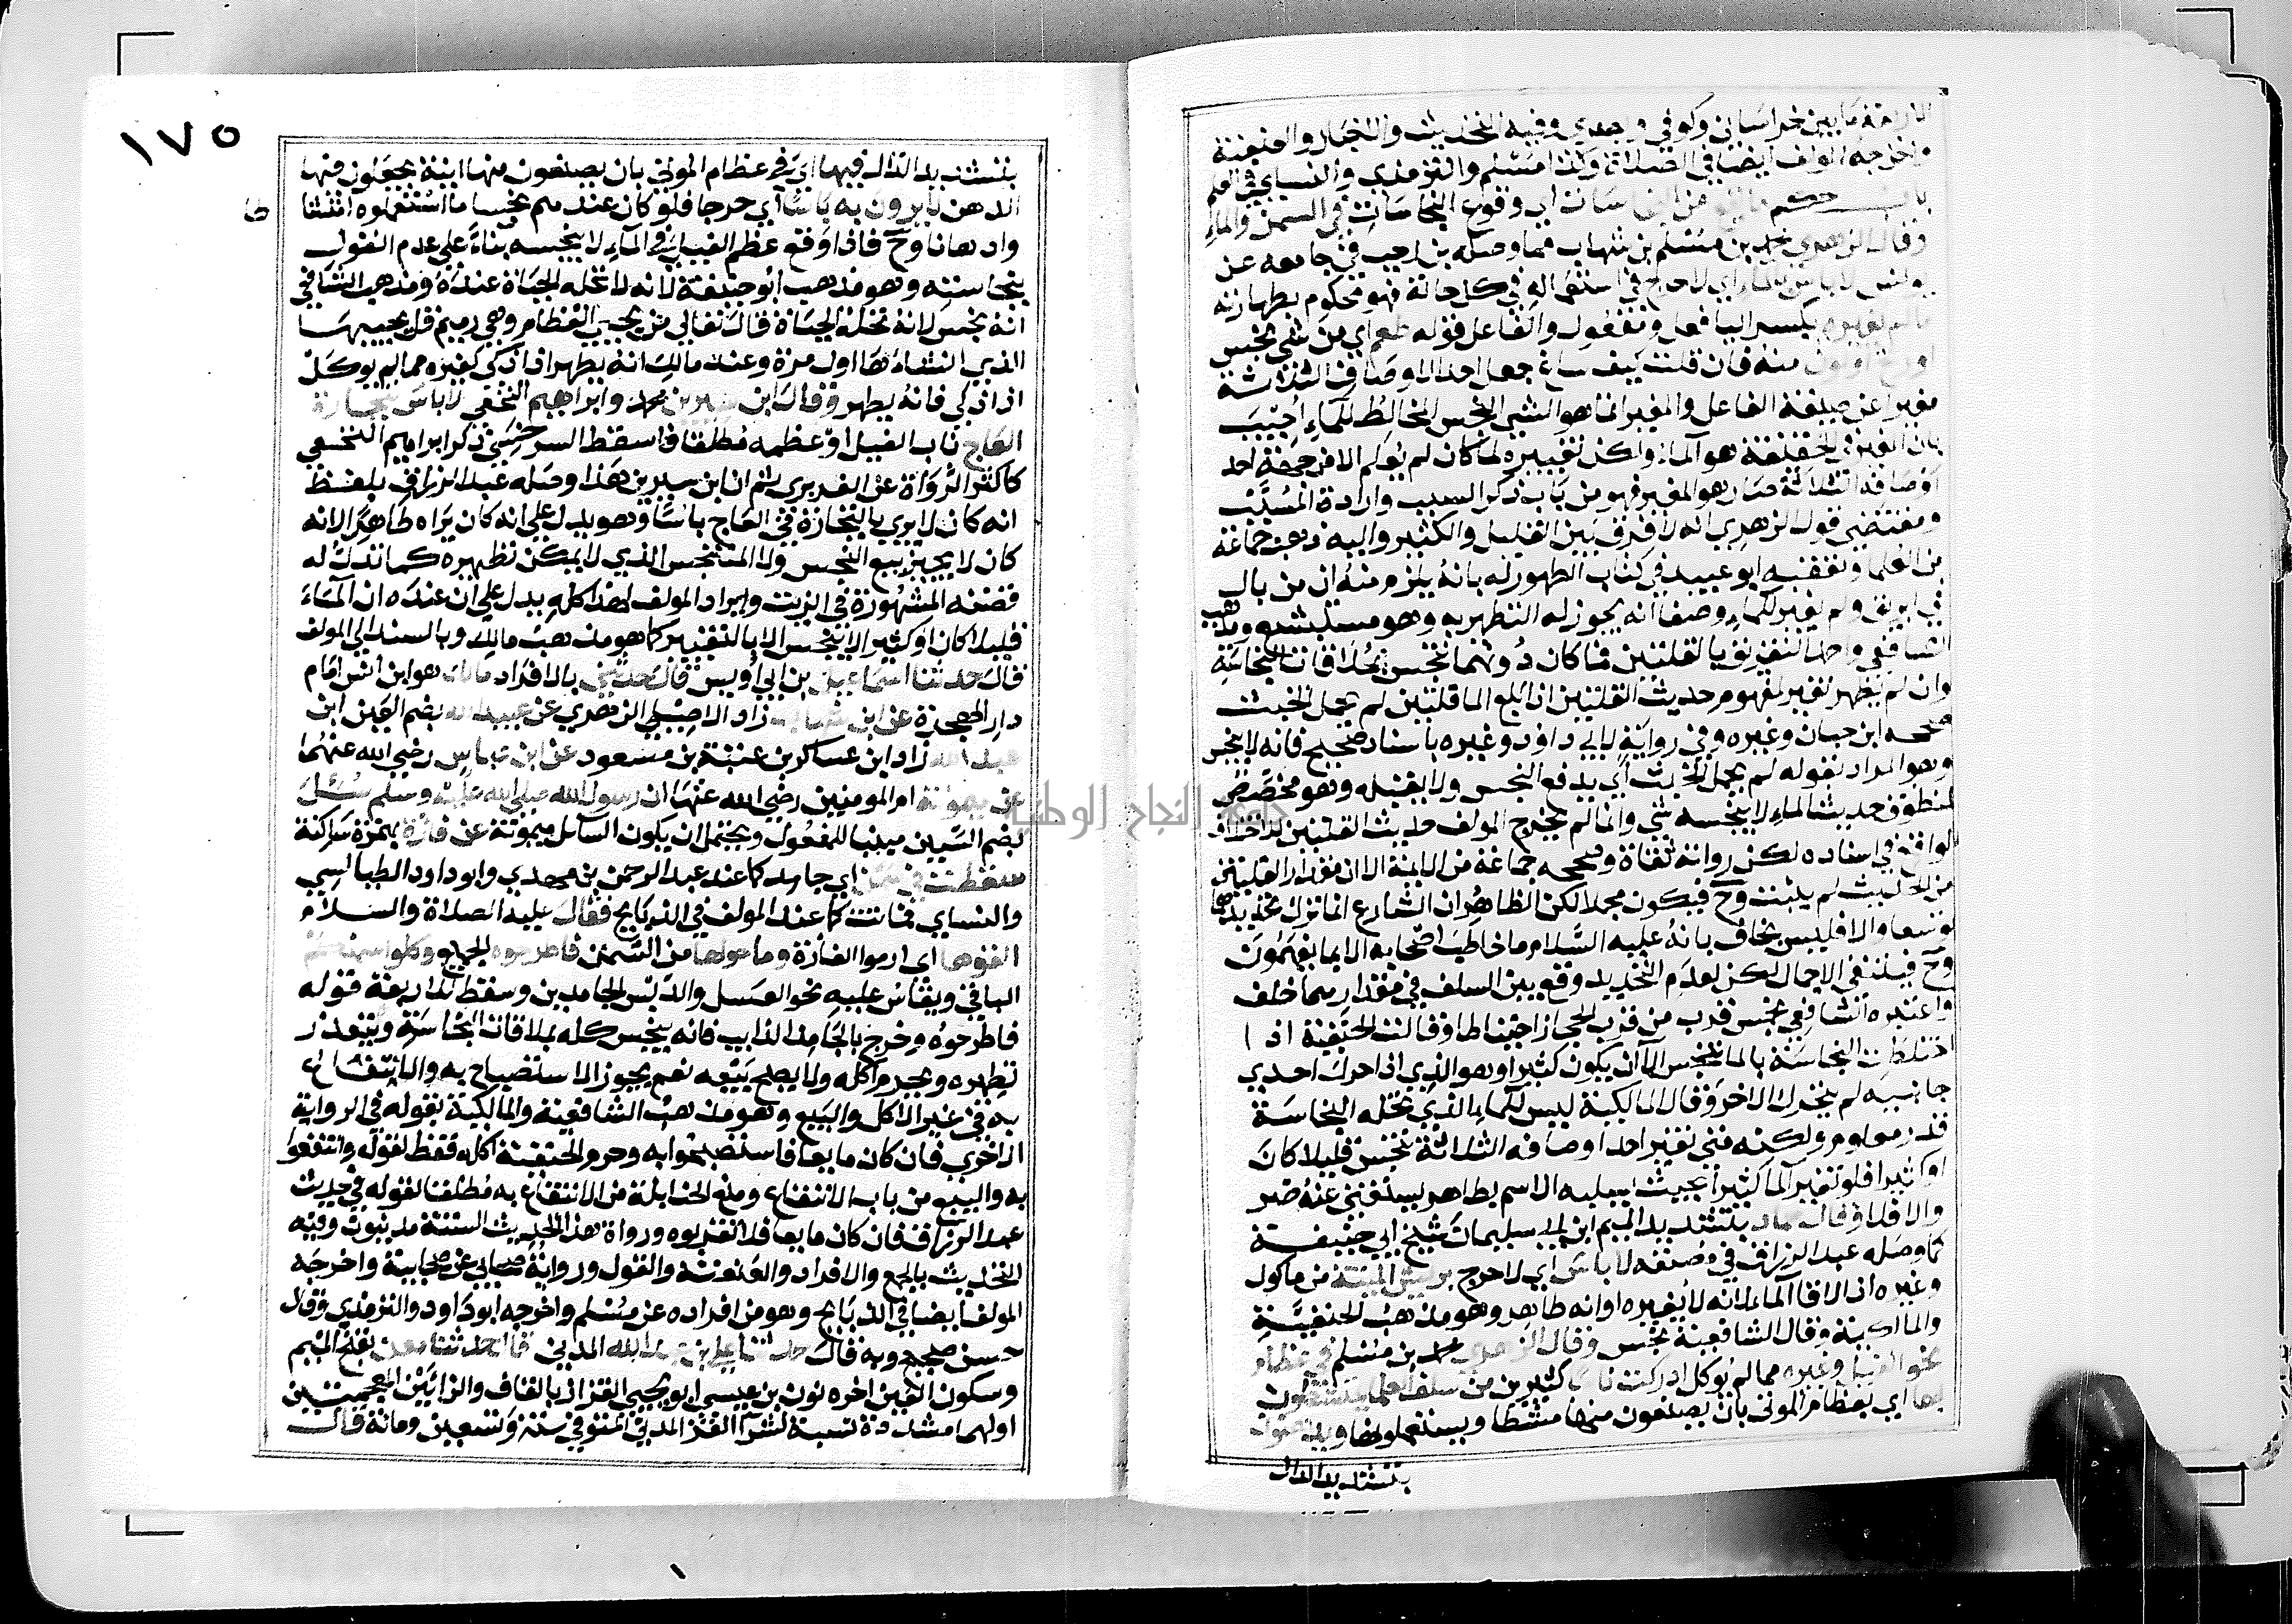 الاربعة مابين خراساني وكوفي وبصري وفيه التحديث والاخبار والعنعنة
واخرجه المولف ايضا في الصلاة وكذا مسلم والترمذي والنساي في العلم
باب حكم ما يقع من النجاسات اي وقوع النجاسات في السمن والماء
وقال الزهري محمد بن مسلم بن شهاب مما وصله بن وهب في جامعه عن
يونس لا باس بالماء اي لا حرج في استعماله في كل حالة فهو محكوم بطهارته
مالم يغيره بكسر اليا فعل ومفعول والفاعل قوله طعم اي من شي نجس
او ريح او لون منه فان قلت كيف ساغ جعل احد الاوصاف الثلاثة
مغيرا عن صيغة الفاعل والمغير انما هو الشي النجس المخالط للماء اجيب
بان المغير في الحقيقة هو الماء ولكن تغييره لما كان لم يعلم الا من جهة احد
اوصافه الثلاثة صار هو المغير فهو من باب ذكر السبب وارادة المسبب
ومقتضى قول الزهري انه لا فرق بين القليل والكثير واليه ذهب جماعة
من العلما وتعقبه ابو عبيد في كتاب الطهور له بانه يلزم منه ان من بال
في ابريق ولم يغير للماء وصفا انه يجوز له التطهر به وهو مستبشع ومذهب
الشافعي واحمد التفريق بالقلتين فما كان دونهما نجس بملاقات النجاسة
وان لم يظهر تغير لمفهوم حديث القلتين اذا بلغ الما قلتين لم يحمل الخبث
صححه ابن حبان وغيره وفي رواية لابي داود وغيره باسناد صحيح فانه لا ينجس
وهو المراد بقوله لم يحمل الخبث اي يدفع النجس ولا يقبله وهو مخصص
لمنطوق حديث الماء لا ينجسه شي وانما لم يخرج المولف حديث القلتين للاختلاف
الواقع في اسناده لكن رواته ثقاة وصححه جماعة من الايمة الا ان مقدار القلتين
من الحديث لم يثبت وح فيكون مجملا لكن الظاهر ان الشارع انما ترك تحديدهما
توسعا والا فليس بخاف بانه عليه السلام ما خاطب اصحابه الا بما يفهمون
وح فينتفي الاجمال لكن لعدم التحديد وقع بين السلف في مقدارهما خلف
واعتبره الشافعي بخمس قرب من قرب الحجاز احتياطا وقالت الحنفية اذا
اختلطت النجاسة بالما تنجس الا ان يكون كثيرا وهو الذي اذا حرك احدي
جانبيه لم يتحرك الاخر وقال المالكية ليس للماء الذي تحله النجاسة
قدر معلوم ولكنه متى تغير احد اوصافه الثلاثة تنجس قليلا كان
او كثيرا فلو تغير الما كثيرا بحيث يسلبه الاسم بطاهر يستغني عنه ضر
والا فلا وقال حماد بتشديد الميم ابن ابي سليمان شيخ ابي حنيفة
مما وصله عبد الرزاق في مصنفه لا باس اي لا حرج بريش الميتة من ماكول
وغيره اذا لاقا الماء لانه لا يغيره او انه طاهر وهو مذهب الحنفية
والمالكية وقال الشافعية نجس وقال الزهري محمد بن مسلم في عظام
نحو الفيل وغيره مما لم يوكل ادركت ناسا كثيرين من سلف العلما يمتشطون
بها اي بعظام الموتى بان يصنعون منها مشطا ويستعملونها ويدهنون
بتشديد الدال
١٧٥
بتشديد الدال فيها اي في عظام الموتى بان يصنعون منها انية يجعلون فيها
الدهن لا يرون به باسا اي حرجا فلو كان عندهم نجسا ما استعملوه امتشاطا
وادهانا وح فاذا وقع عظم الفيل في الماء لا ينجسه بناء على عدم القول
بنجاسته وهو مذهب ابو حنيفة لانه لا تحله الحياة عنده ومذهب الشافعي
انه نجس لانه تحله الحياة قال تعالى من يحيي العظام وهي رميم قل يحييها
الذي انشاءها اول مرة وعند مالك انه يطهر اذا ذكي كغيره مما لم يوكل
اذا ذكي فانه يطهر وقال ابن سيرين محمد وابراهيم النخعي لا باس بتجارة
العاج ناب الفيل او عظمه مطلقا واسقط السرخسي ذكر ابراهيم النخعي
كاكثر الرواة عن الفربري ثم ان ابن سيرين هذا وصله عبد الرزاق بلفظ
انه كان لا يري بالتجارة في العاج باسا وهو يدل على انه كان يراه طاهرا لانه
كان لا يجيز بيع النجس ولا المتنجس الذي لا يمكن تطهيره كما تدل له
قصته المشهورة في الزيت وايراد المولف لهذا كله يدل على ان عنده ان الماء
قليلا كان او كثيرا لا ينجس الا بالتغير كما هو مذهب مالك وبالسند الى المولف
قال حدثنا اسماعيل بن ابي اويس قال حدثني بالافراد مالك هو ابن انس امام
دار الهجرة عن ابن شهاب زاد الاصيلي الزهري عن عبيد الله بضم العين ابن
عبد الله زاد ابن عساكر بن عتبة بن مسعود عن ابن عباس رضي الله عنهما
عن ميمونة ام المومنين رضي الله عنها ان رسول الله صلى الله عليه وسلم سئل
بضم السين مبنيا للمفعول ويحتمل ان يكون السائل ميمونة عن فارة بهمزة ساكنة
سقطت في سمن اي جامد كما عند عبد الرحمن بن مهدي وابو داود الطيالسي
والنساي فماتت كما عند المولف في الذبايح فقال عليه الصلاة والسلام
القوها اي ارموا الفارة وما حولها من السمن فاطرحوه الجميع وكلوا سمنكم
الباقي ويقاس عليه نحو العسل والدبس الجامدين وسقط للاربعة قوله
فاطرحوه وخرج بالجامد الذايب فانه ينجس كله بملاقات النجاسة ويتعذر
تطهيره ويحرم اكله ولا يصح بيعه نعم يجوز الاستصباح به والانتفاع
به في غير الاكل والبيع وهو مذهب الشافعية والمالكية لقوله في الرواية
الاخري فان كان مايعا فاستصبحوا به وحرم الحنفية اكله فقط لقوله وانتفعوا
به والبيع من باب الانتفاع ومنع الحنابلة من الانتفاع به مطلقا لقوله في حديث
عبد الرزاق فان كان مايعا فلا تقربوه ورواة هذا الحديث الستة مدنيون وفيه
التحديث بالجمع والافراد والعنعنة والقول ورواية صحابي عن صحابية واخرجه
المولف ايضا في الذبايح وهو من افراده عن مسلم واخرجه ابو داود والترمذي وقال
حسن صحيح وبه قال حدثنا علي بن عبد الله المديني قال حدثنا معن بفتح الميم
وسكون العين اخره نون بن عيسى ابو يحيى القزاز بالقاف والزايين المعجمتين
اولهما مشددة نسبة لشرا القز المدني المتوفي سنة وتسعين ومائة قال
جامعة النجاح الوطنية